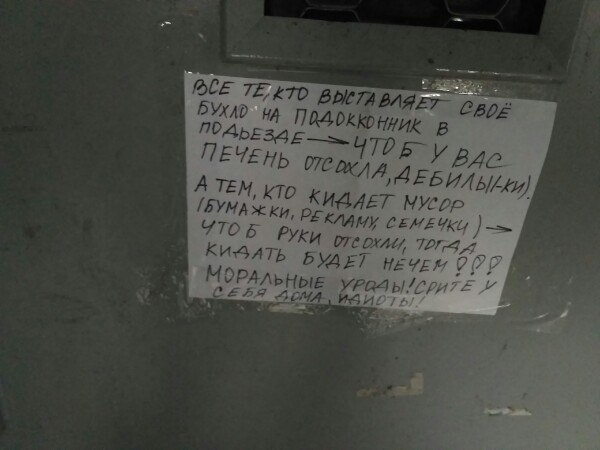 ВСЕ ТЕ, КТО ВЫСТАВЛЯЕТ СВОЁ
БУХЛО НА ПОДОККОННИК В
ПОДЬЕЗДЕ → ЧТОБ У ВАС
ПЕЧЕНЬ ОТСОХЛА, ДЕБИЛЫ(-КИ).
А ТЕМ, КТО КИДАЕТ МУСОР
(БУМАЖКИ, РЕКЛАМУ, СЕМЕЧКИ) →
ЧТОБ РУКИ ОТСОХЛИ, ТОГДА
КИДАТЬ БУДЕТ НЕЧЕМ!!!
МОРАЛЬНЫЕ УРОДЫ! СРИТЕ У
СЕБЯ ДОМА, ИДИОТЫ!